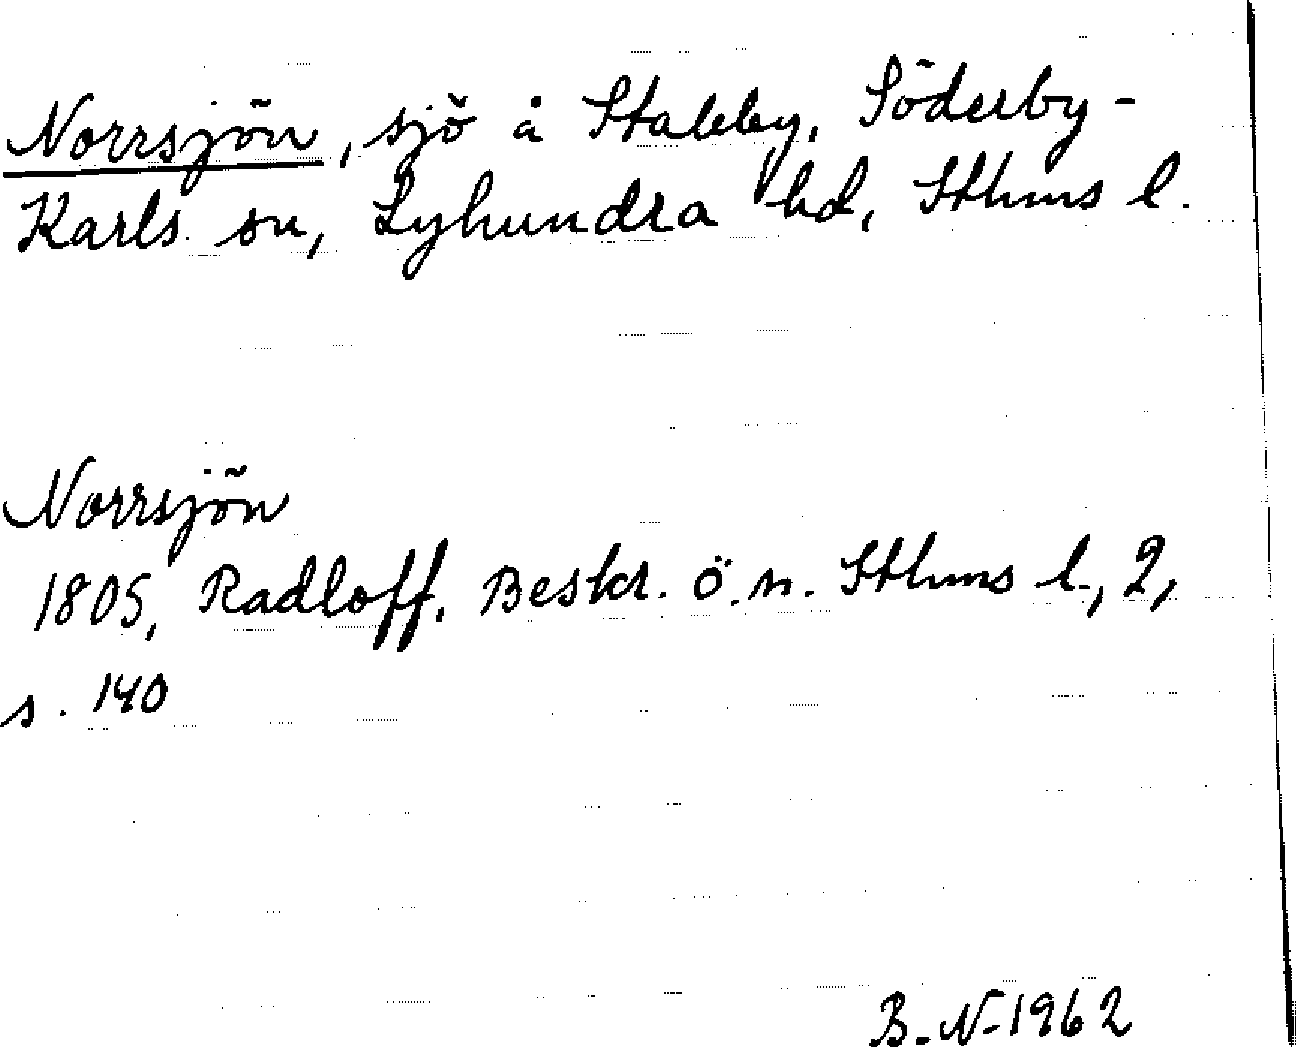 Norrsjön, sjö å Stabby, Söderby-
Karls sn, Lyhundra hd, Sthms l.
Norrsjön
1805, Radloff, Beskr. ö. n. Sthms l., 2,
s. 140
B. N. 1962